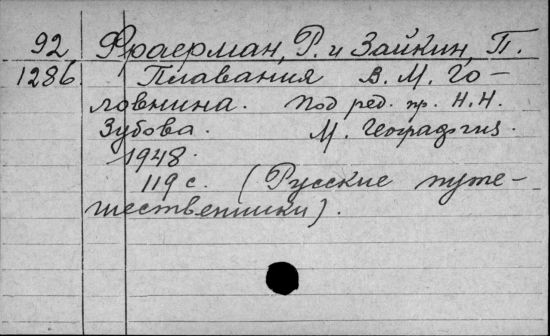 92 Фраерман, Р. и Зайкин, П.
1286. Плавания В. М. Го-
ловнина. Под ред. пр. Н.Н.
Зубова. М. Географгиз.
1948.
119 с. (Русские путе-
шественники).